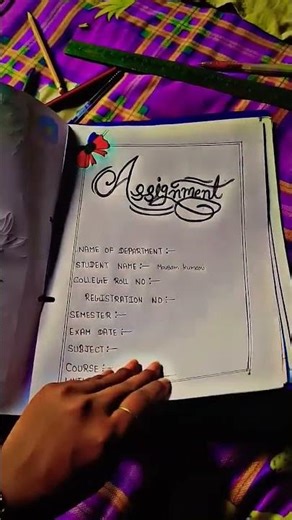 Assignment
NAME OF DEPARTMENT:-
STUDENT NAME:-
COLLEGE ROLL NO:-
REGISTRATION NO:-
SEMESTER:-
EXAM DATE:-
SUBJECT:-
COURSE:-